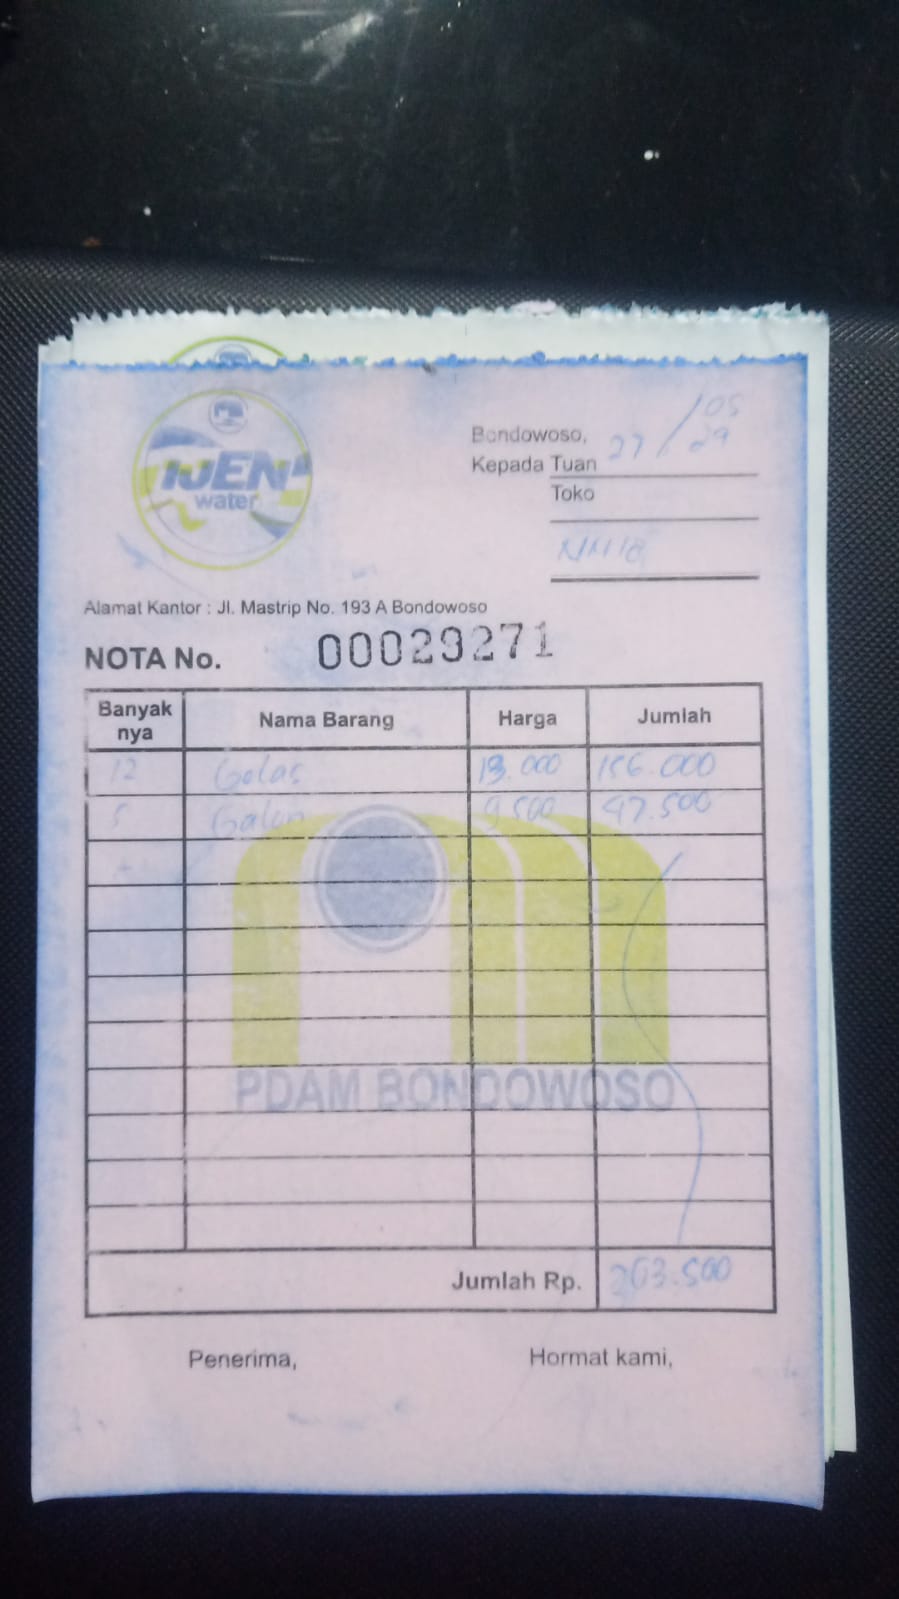 IJEN
water
Bondowoso, 27/05
Kepada Tuan
Toko
Alamat Kantor : Jl. Mastrip No. 193 A Bondowoso
NOTA No. 00029271
Banyak nya Nama Barang Harga Jumlah
12 Gelas 13.000 156.000
5 Galon 9.500 47.500
PDAM BONDOWOSO
Jumlah Rp. 203.500
Penerima, Hormat kami,